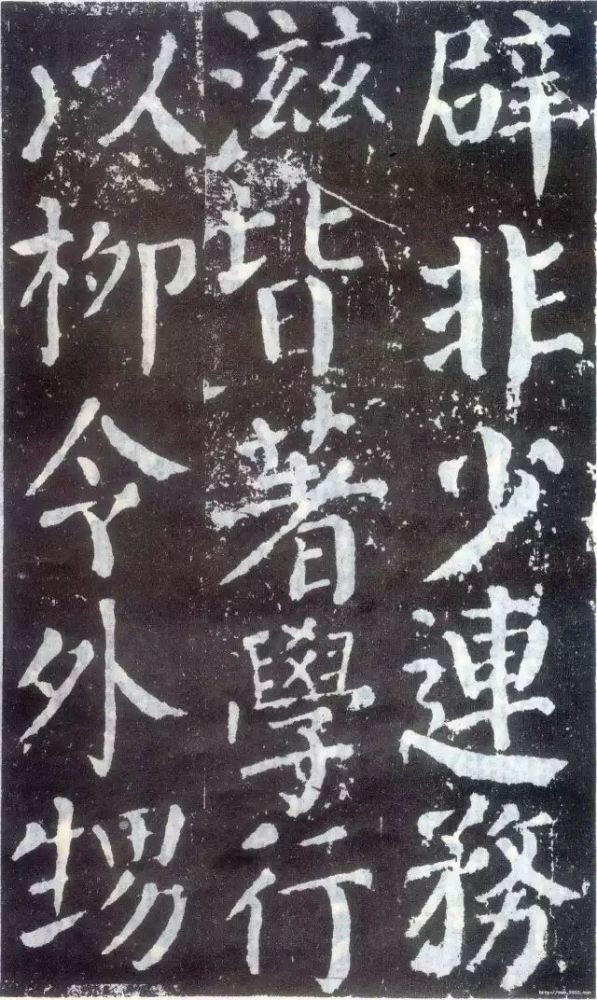 辟非少連務
滋皆著學行
以柳令外甥